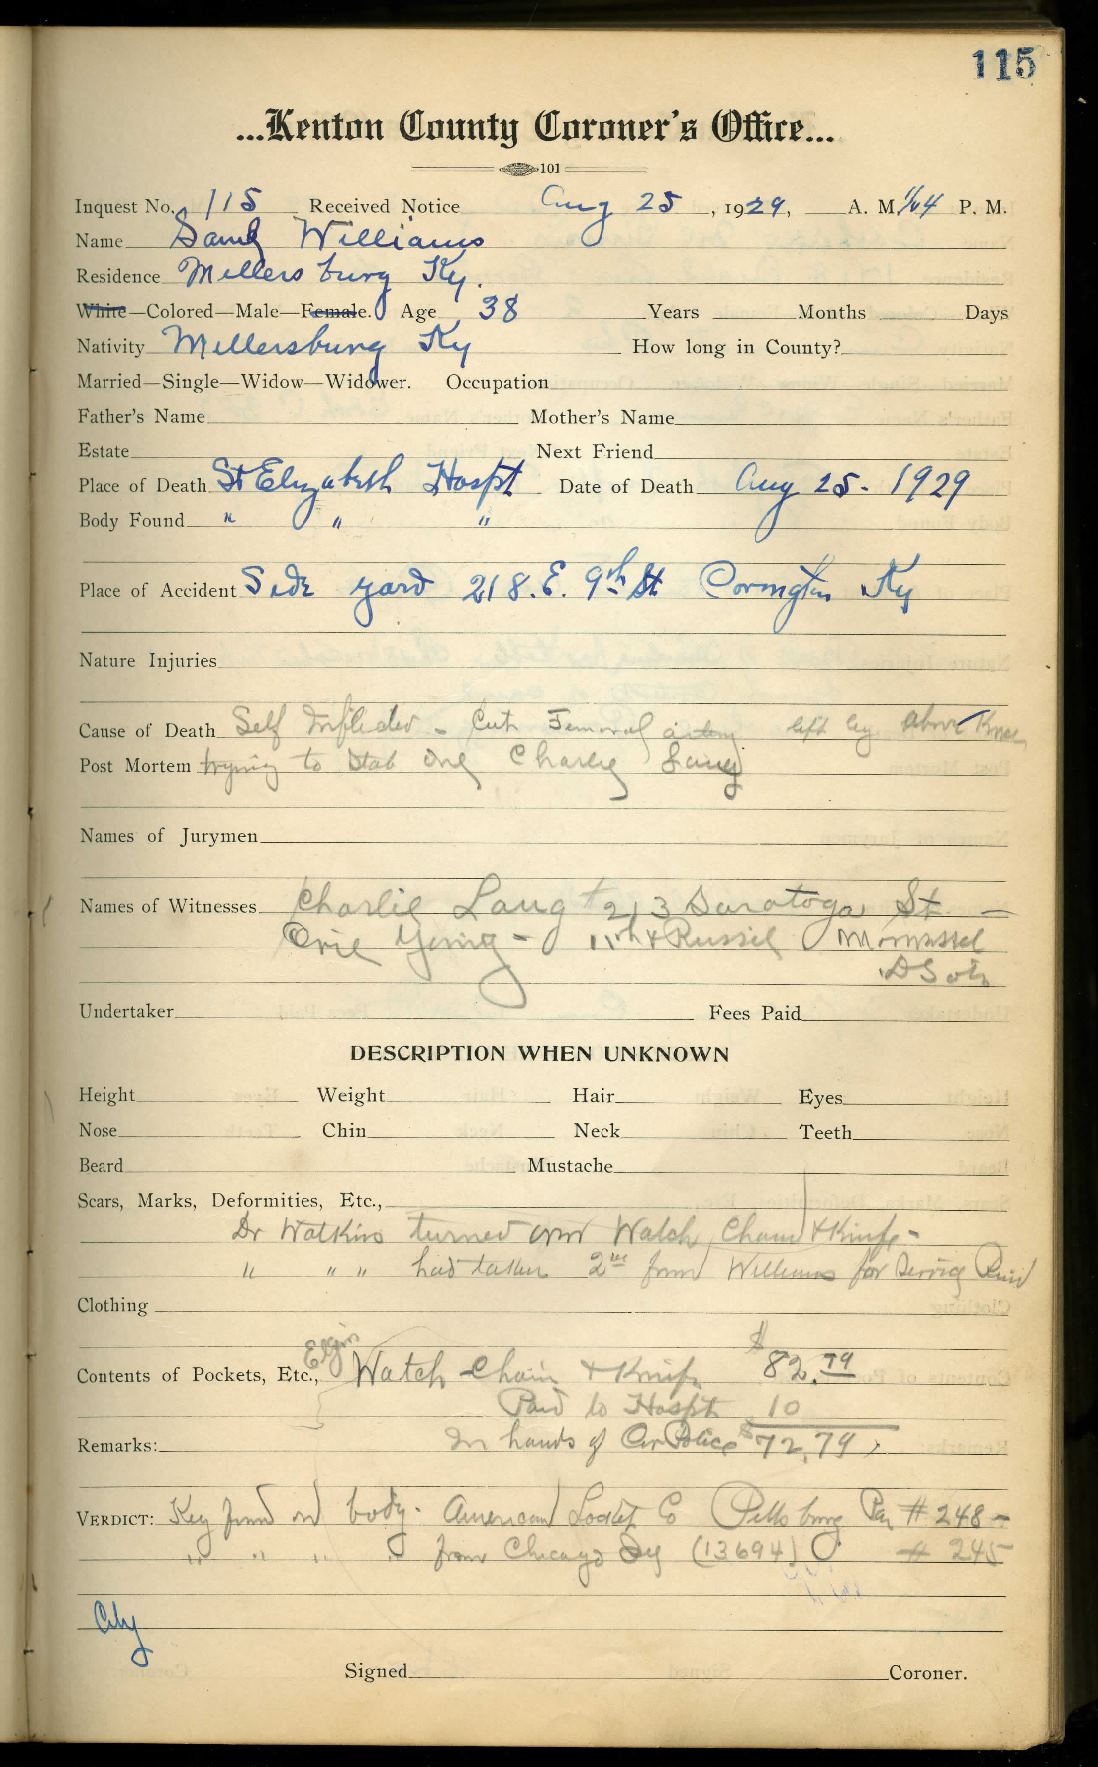 115
...Kenton County Coroner's Office...
101
Inquest No. 115 Received Notice Aug 25, 1929, A. M. P. M.
Name Williams
Residence Millersburg Ky.
White—Colored—Male—Female. Age 38 Years Months Days
Nativity Millersburg Ky How long in County?
Married—Single—Widow—Widower. Occupation
Father's Name Mother's Name
Estate Next Friend
Place of Death St Elizabeth Hospt Date of Death Aug 25 - 1929
Body Found " " "
Place of Accident Side yard 218. E. 9th St Covington Ky
Nature Injuries
Cause of Death Self Inflicted - Cut Femoral artery left leg above Knee
Post Mortem trying to stab one Charlie Lang
Names of Jurymen
Names of Witnesses Charlie Lang # 213 Saratoga St —
- 11th & Russel
Undertaker Fees Paid
DESCRIPTION WHEN UNKNOWN
Height Weight Hair Eyes
Nose Chin Neck Teeth
Beard Mustache
Scars, Marks, Deformities, Etc.,
Dr Watkins turned over Watch, Chain & Knife -
" " " had taken 2 from Williams for Service
Clothing
Elgin $
Contents of Pockets, Etc., Watch Chain & Knife 82.79
Paid to Hospt 10
Remarks: In hands of Police $72.79
VERDICT: Key found on body - American Co Pittsburg Pa # 248 -
" " " " from Chicago (13694) # 245
City
Signed Coroner.